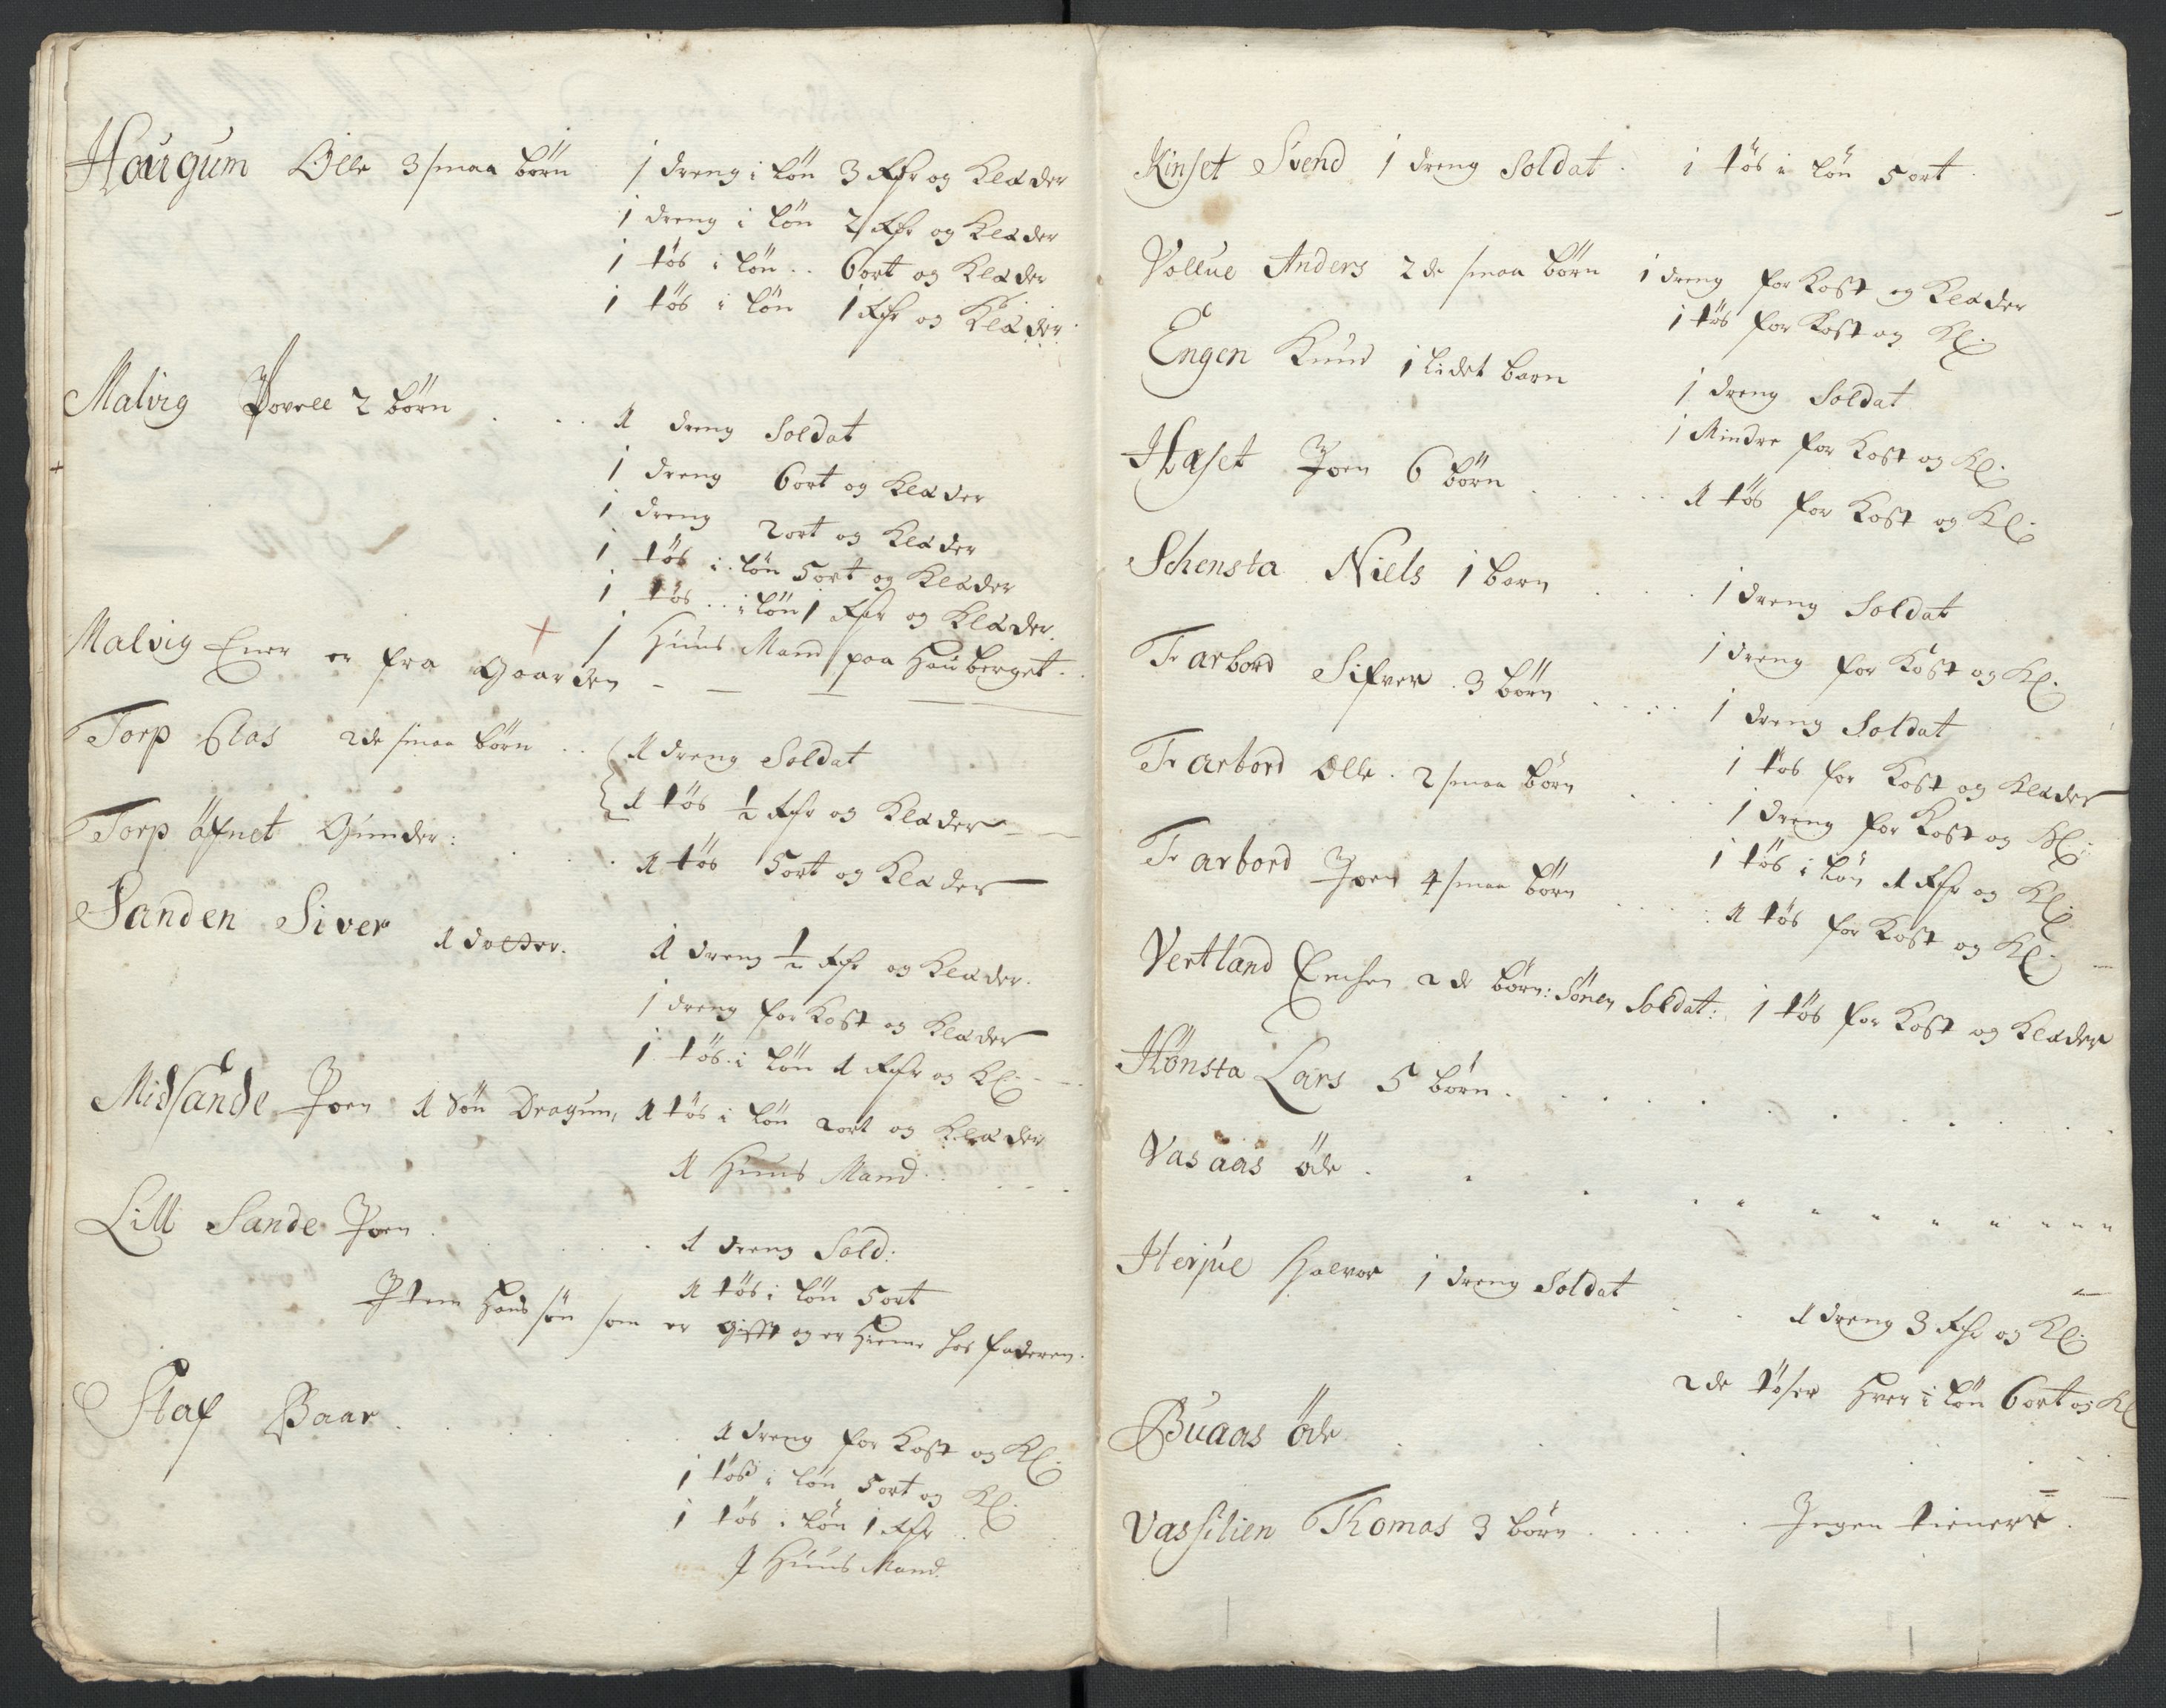 Haugum Olle 3 smaa børn 1 dreng i løn 3 Rdr og Klæder
1 dreng i løn 2 Rdr og Klæder
1 tøs i løn .. 6 ort og Klæder
1 tøs i løn 1 Rdr og Klæder
Malvig Povell 2 børn . . . 1 dreng Soldat
1 dreng 6 ort og Klæder
1 dreng 2 ort og Klæder
1 tøs i løn 5 ort og Klæder
1 tøs .. i løn 1 Rdr og Klæder.
1 Huus Mand paa Hauberget
Malvig Ener er fra Gaarden
Torp Clas 2de smaa børn .. 1 dreng Soldat
1 tøs ½ Rdr og Klæder
Torp øfnet Gunder: . . . 1 tøs 5 ort og Klæder
Sanden Siver 1 dotter. 1 dreng ½ Rdr og Klæder.
1 dreng for Kost og Klæder
1 tøs i løn 1 Rdr og Kl:
Midsande Joen 1 Søn Dragun, 1 tøs i løn 2 ort og Klæder
1 Huus Mand
Lill Sande Joen . . . 1 dreng Sold:
1 tøs i løn 5 ort
Item Hans søn som er gifft og er hieme hos faderen.
Staf Baar . . . 1 dreng for Kost og Kl:
1 tøs i løn 5 ort og Kl:
1 tøs i løn 1 Rdr
1 Huus Mand.
Kinset Svend 1 dreng Soldat . 1 tøs i løn 5 ort
Vollue Anders 2de smaa børn 1 dreng for Kost og Klæder
1 tøs for Kost og Kl:
Engen Knud 1 lidet barn 1 dreng Soldat
1 Mindre for Kost og Kl:
Haset Joen 6 børn . . . 1 tøs for Kost og Kl:
Schensta Niels 1 barn . . . 1 dreng Soldat
1 dreng for Kost og Kl:
Farbord Sifver 3 børn . . . 1 dreng Soldat
1 tøs for Kost og Klæder
Farbord Olle . 2 smaa børn . . . 1 dreng for Kost og Kl:
1 tøs i løn 1 Rdr og Kl:
Farbord Joen 4 smaa børn . . . 1 tøs for Kost og Kl:
Vertland 2de børn: Sønen Soldat: 1 tøs for Kost og Klæder
Hønsta Lars 5 børn . . .
Vasaas øde . . .
Herjue Halvor 1 dreng Soldat . . 1 dreng 3 Rdr og Kl:
2de tøser hver i løn 6 ort og Kl
Buaas øde . . .
Vassilien Thomas 3 børn . . . Ingen tienere.